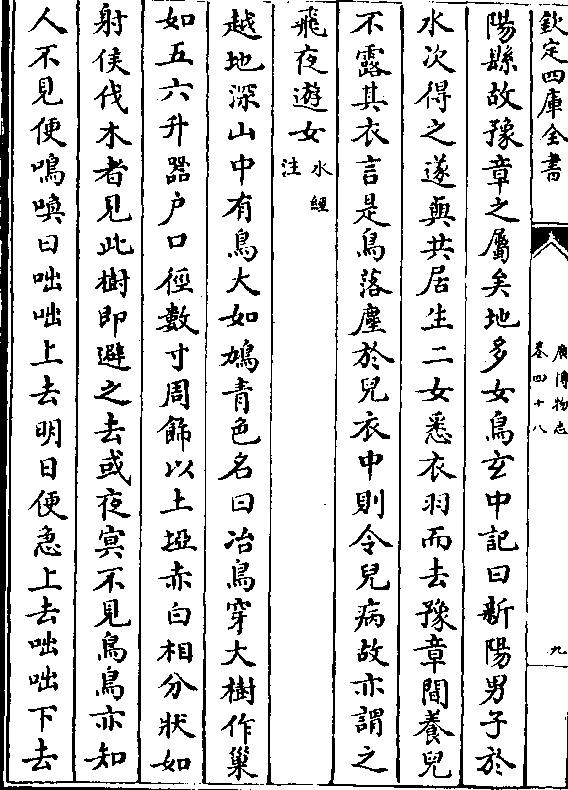 欽定四庫全書
廣博物志
卷四十八
九
陽縣故豫章之屬矣地多女鳥玄中記曰新陽男子於
水次得之遂與共居生二女悉衣羽而去豫章間養兒
不露其衣言是鳥落塵於兒衣中則令兒病故亦謂之
飛夜遊女水經注
越地深山中有鳥大如鳩青色名曰冶鳥穿大樹作巢
如五六升器户口徑數寸周飾以土堊赤白相分狀如
射侯伐木者見此樹即避之去或夜㝠不見鳥鳥亦知
人不見便鳴喚曰咄咄上去明日便急上去咄咄下去